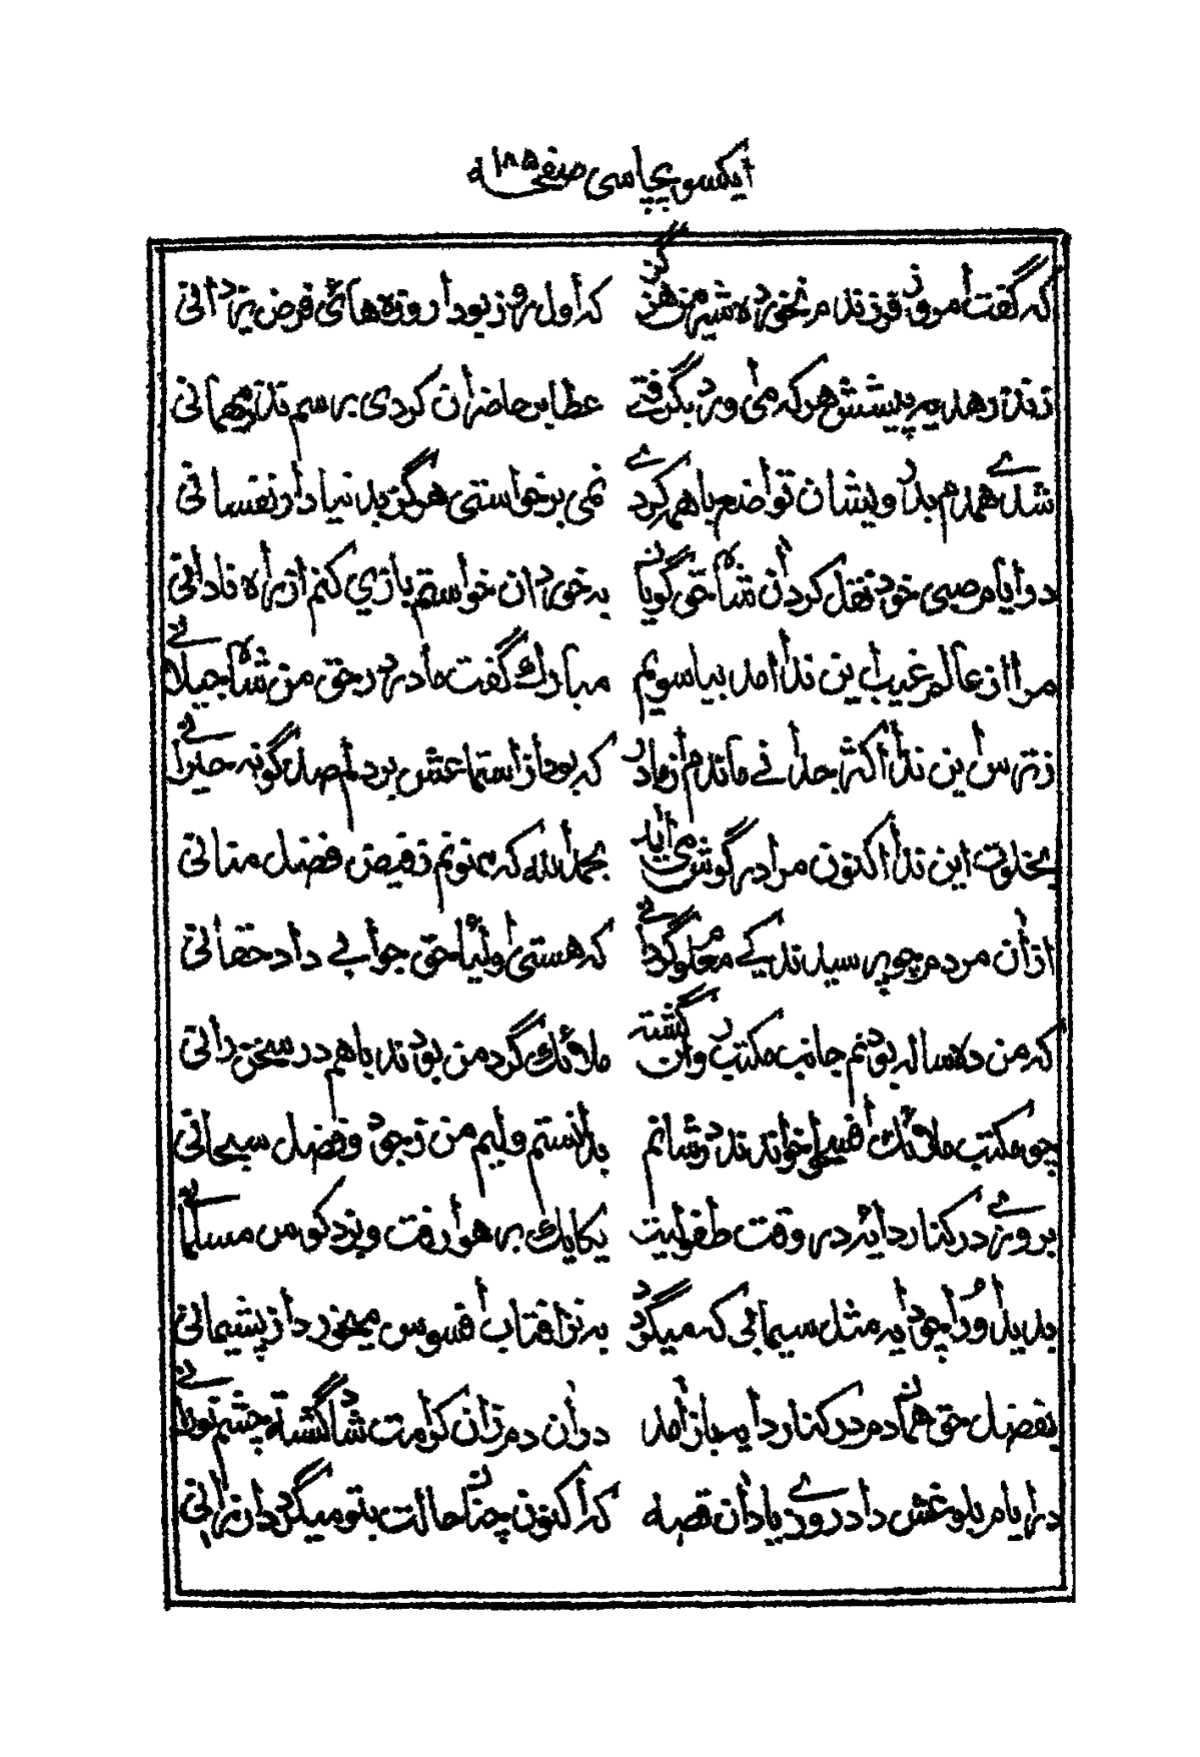 ایکسو پچاسی صفحہ ۱۸۵
که گفت امروز فرزندم نخورده شیر من هرگز که اول روز بود از روزه های فرض یزدانی
زنذر هدیه پیشش هرکه می آورد بگرفتے عطا بر حاضران کردی برسم نذر مهمانی
شدے همدم بدرویشان تواضع باهمه کردے نمی برخواستی هرگز بدنیادار نفسانی
در ایام صبی خود نقل کرد آن شاه حق گویا به خوردان خواستم بازی کنم از راه نادانی
مرا از عالم غیب این ندا آمد بیا سویم مبارک گفت مادر در حق من شاه جیلانے
ز ترس این ندا اکثر جدا نے ماندم از مادر که بود از استماعش بر دلم صد گونه حیرانے
بخلوت این ندا اکنون مرا در گوش می آید بحمدالله که ممنونم ز فیض فضل منانی
از آن مردم چو پرسیدند کے معلوم گردانے که هستی اولیا حق جوابے داد حقانی
که من ده ساله بودم جانب مکتب روان گشته ملائک گرد من بودند باهم در سخن رانی
چو مکتب ملائک افسحوا خواندند در شانم بدانستم ولیم من ز جود و فضل سبحانی
بروزے در کنار دایه در وقت طفولیت یکایک بر هوا رفت و نزد کوس مسلمانے
بدید او را چو دایه مثل سیمابی که میگردد به نزد آفتاب افسوس میخورد از پشیمانی
بفضل حق هماندم در کنار دایه باز آمد در آن دم زان کرامت شاد گشته چشم نورانے
در ایام بلوغش داد روزے یاد آن قصه که اکنون چنان حالت بتو میگردد ارزانی